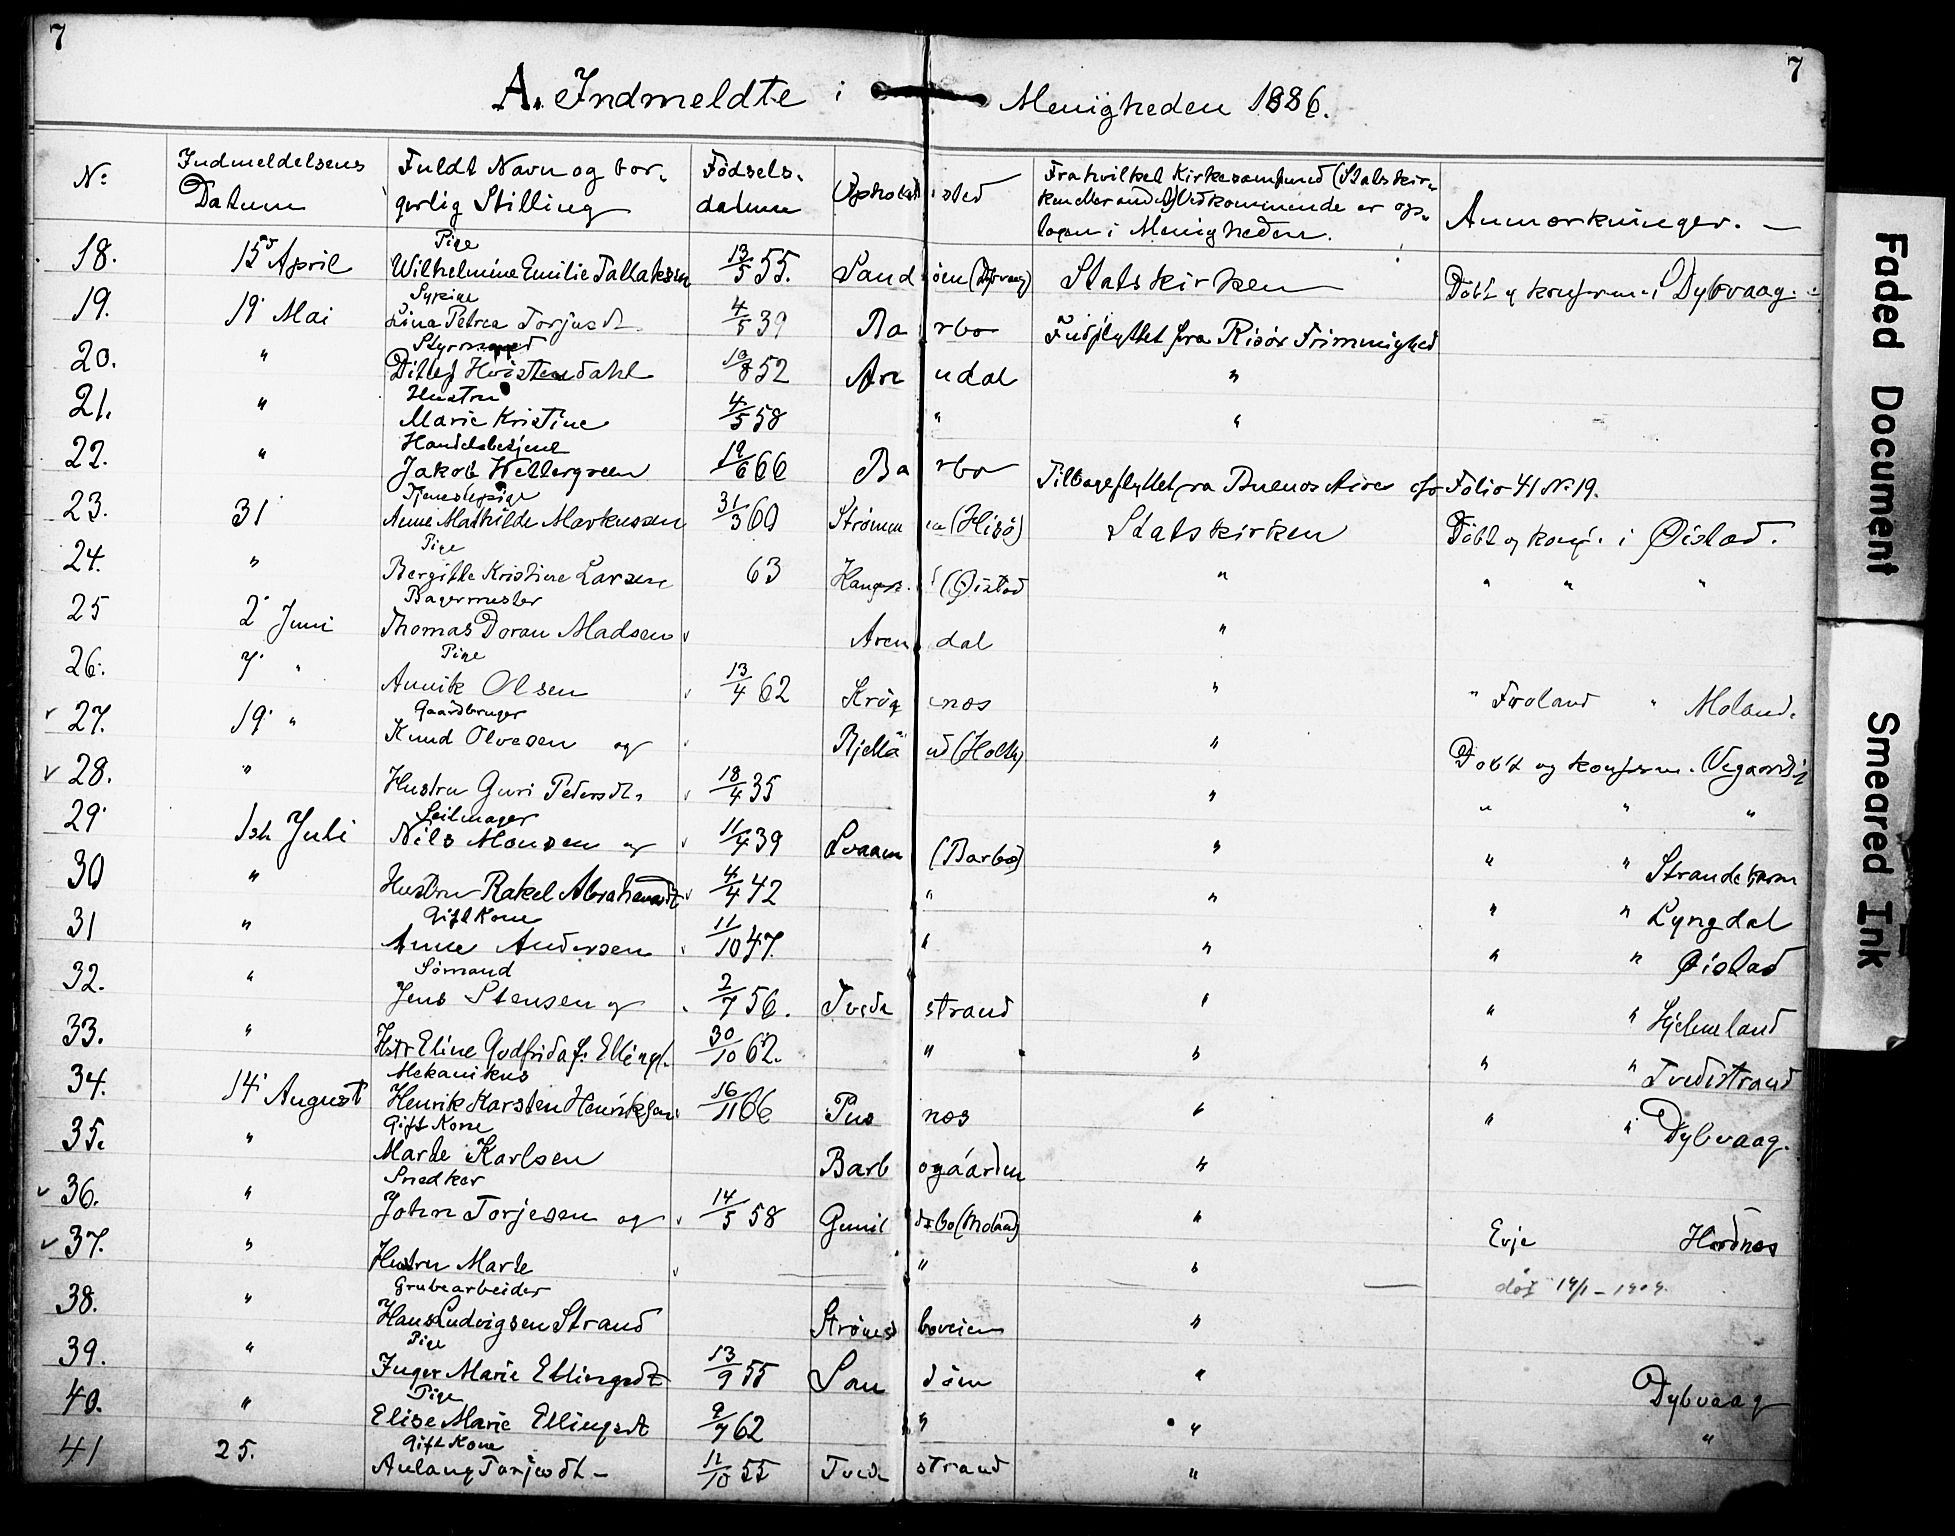 7 7
A. Indmeldte i Menigheden 1886.
No Indmeldelsens Datum Fuldt Navn og borgerlig Stilling Fødselsdatum Opholdssted Fra hvilket Kirkesamfund (Statskirken eller andet) Vedkommende er optagen i Menigheden. Anmærkninger.
Pige
18. 15 April Wilhelmine Emilie Tallaksen 13/5 55. Sandøen (Dybvaag) Statskirken Døbt og konfirm. i Dybvaag.
Sypige
19. 19' Mai Lina Petrea Torjusdt. 4/5 39 Barbo Indflyttet fra Risør Frimenighed
Styrmand
20. " Ditlef Hvistendahl 10/8 52 Arendal "
Hustru
21. " Marie Kristine 4/5 58 " "
Handelsbetjent
22. " Jakob Wettergreen 19/6 66 Barbo Tilbageflyttet fra Buenos Aires cfr Folio 41 No 19.
Tjenestepige
23. 31 Anne Mathilde Markussen 31/3 60 Strømmen (Hisø) Statskirken Døbt og konf. i Øistad.
Pige
24. " Bergitte Kristine Larsen 63 (Øistad " " " "
Bagermester
25 2' Juni Thomas Doran Madsen Arendal "
Pige
26. 7' " Annik Olsen 13/4 62 Krøgenes " " Froland " Moland.
Gaardbruger
27. 19' " Knud Olvesen og (Holt) " Døbt og konfirm. Vegaardsh
28. " Hustru Guri Pedersdt. 18/4 35 " " " "
Seilmager
29' 1ste Juli Nils Monsen og 11/4 39 (Barbo) " " " Strandebarm
30 " Hustru Rakel Abrahamsdt 4/4 42 " " " " Lyngdal
Gift Kone
31 " Anne Andersen 11/10 47. " " " " Øistad
Sømand
32. " Jens Stensen og 2/7 56. Tvedestrand " " "
33. " Hstr Eline Godfrida f. Ellingd. 30/10 62. " " " " Tvedestrand
Mekanikus
34. 14' August Henrik Karsten Henriksen 16/11 66 Pusnes " " i Dybvaag.
Gift Kone
35. " Marte Karlsen Barbogaarden "
Snedker
36. " John Torjesen og 14/5 58 (Moland) " Evje Hordnes
37. " Hustru Marte " " død 19/1 - 1909.
Grubearbeider
38. " Hans Ludvigsen Strand Strømsboveien "
Pige
39. " Inger Marie Ellingsdt 13/9 55 Sandøen " Dybvaag
Pige
40. " Elise Marie Ellingsdt 9/7 62 " " "
Gift Kone
41 25. Aulaug Torjusdt. 12/10 55 Tvedestrand "
Faded Document
Smeared Ink